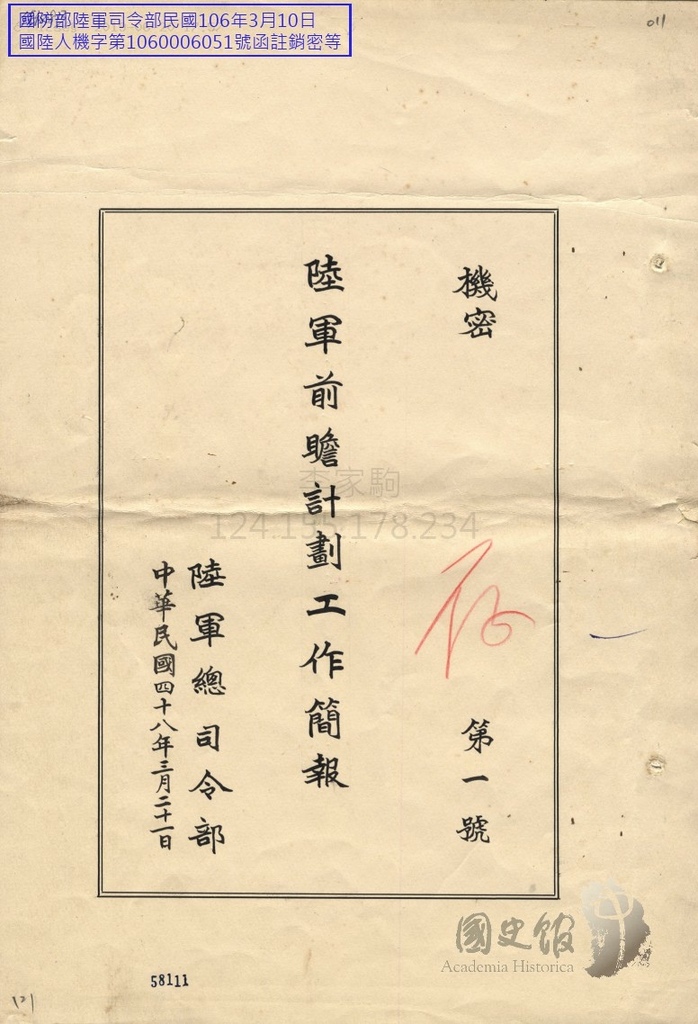 國防部陸軍司令部民國106年3月10日
國陸人機字第1060006051號函註銷密等
011
機密
第一號
陸軍前瞻計劃工作簡報
陸軍總司令部
中華民國四十八年三月二十一日
李家駒
124.195.178.234
國史館
Academia Historica
58111